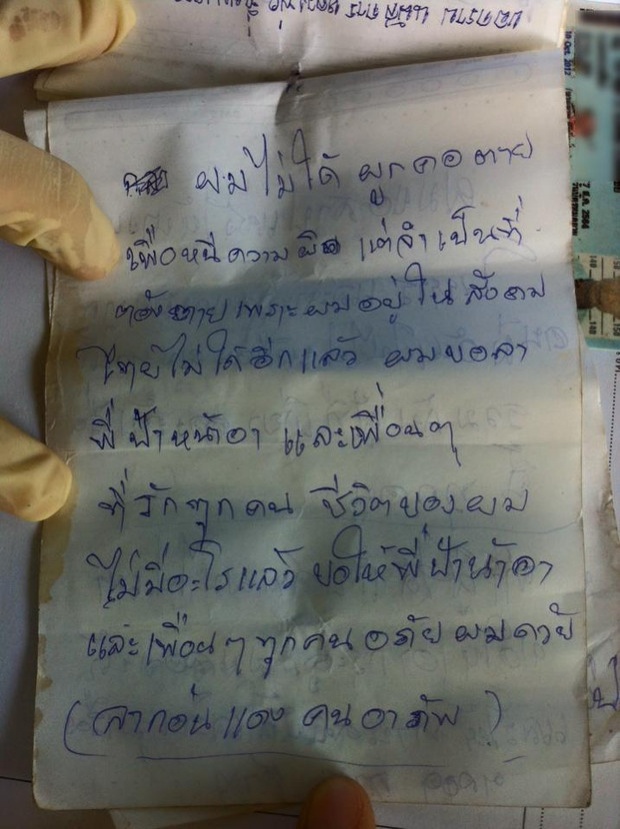 ผมไม่ได้ ผูกคอตาย
เพื่อหนีความผิด แต่จำเป็นที่
ต้องตายเพราะผมอยู่ในสังคม
ไทยไม่ได้อีกแล้ว ผมขอลา
พี่ป้าหน้าอา และเพื่อนๆ
ที่รักทุกคน ชีวิตของผม
ไม่มีอะไรแล้ว ขอให้พี่ป้าน้าอา
และเพื่อนๆทุกคนอภัยผมด้วย
(ลาก่อนแดง คนอาภัพ)